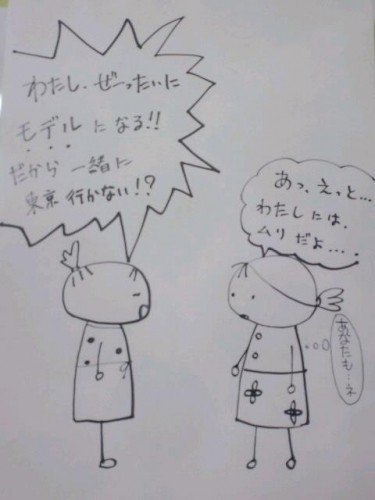 わたし、ぜーったいに
モデルになる!!
だから一緒に
東京行かない!?
あっ、えっと…
わたしには、
ムリだよ….
あなたも…ネ